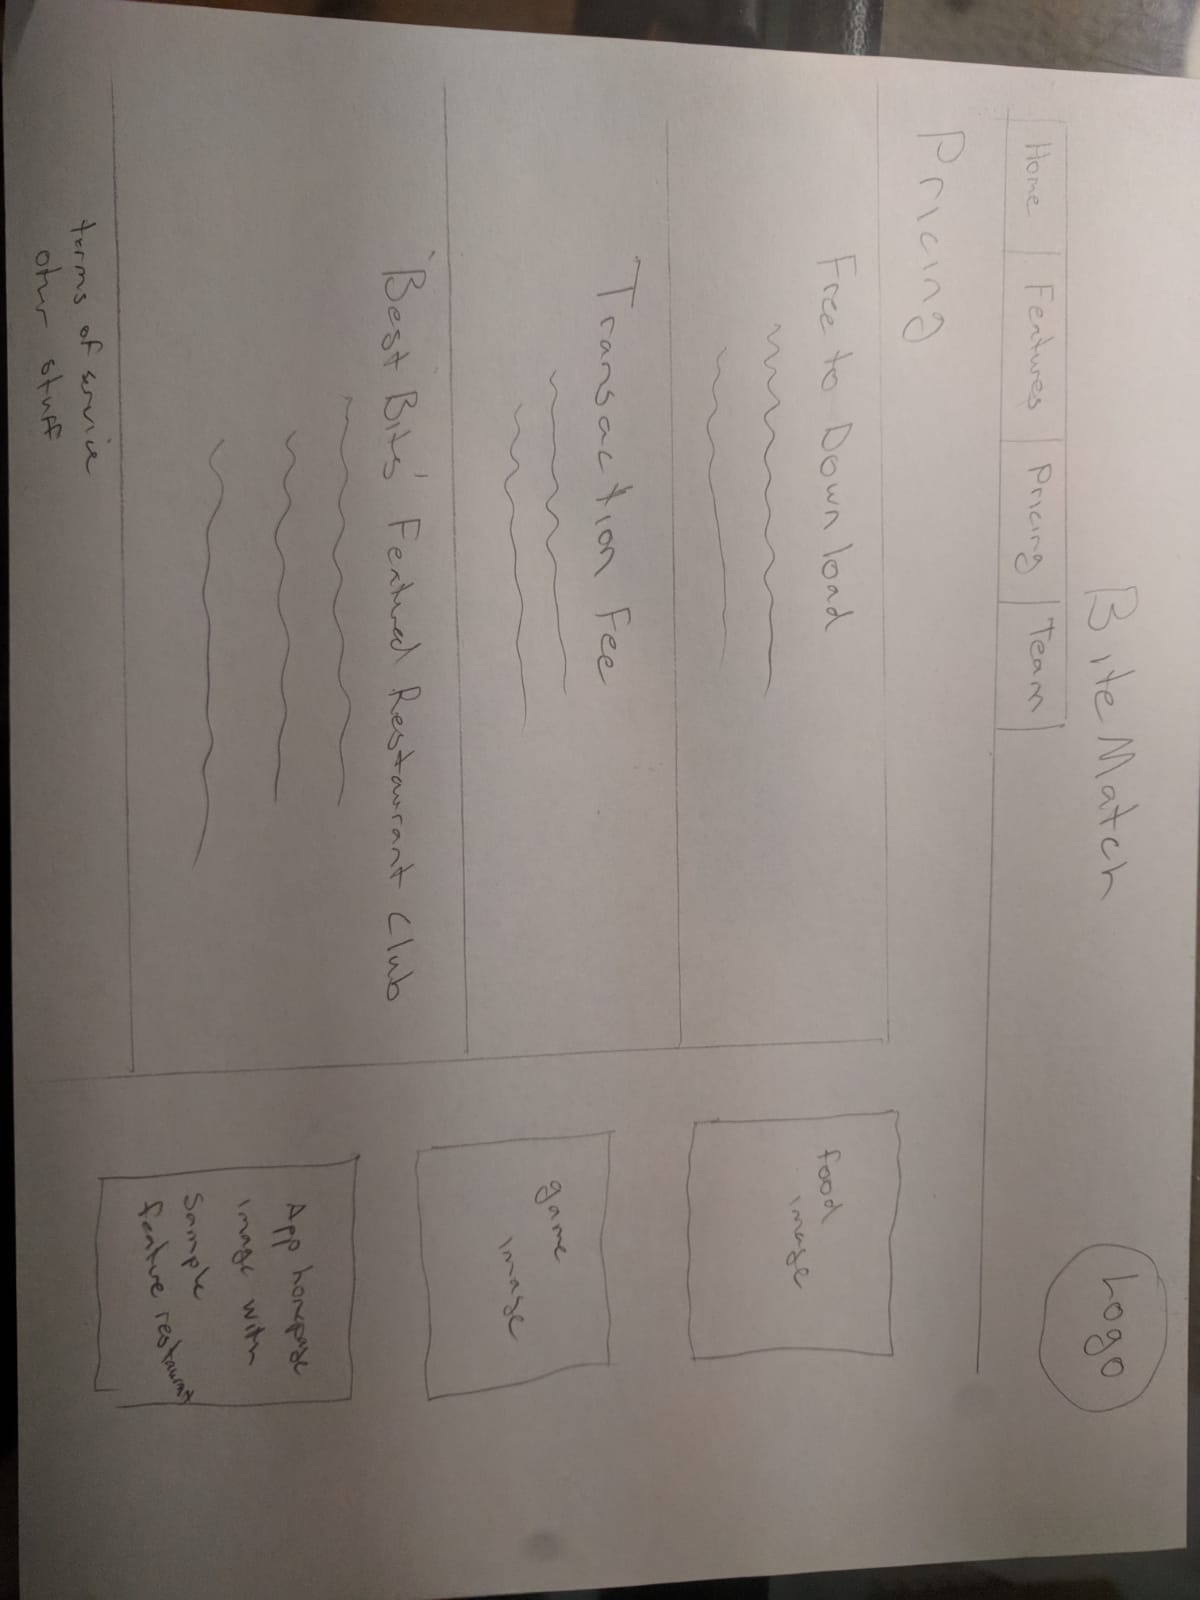 BiteMatch
Logo
Home | Features | Pricing | Team
Pricing
Free to Download
food
image
Transaction Fee
game
image
'Best Bits' Featured Restaurant Club
App homepage
image with
Sample
feature restaurant
terms of service
other stuff